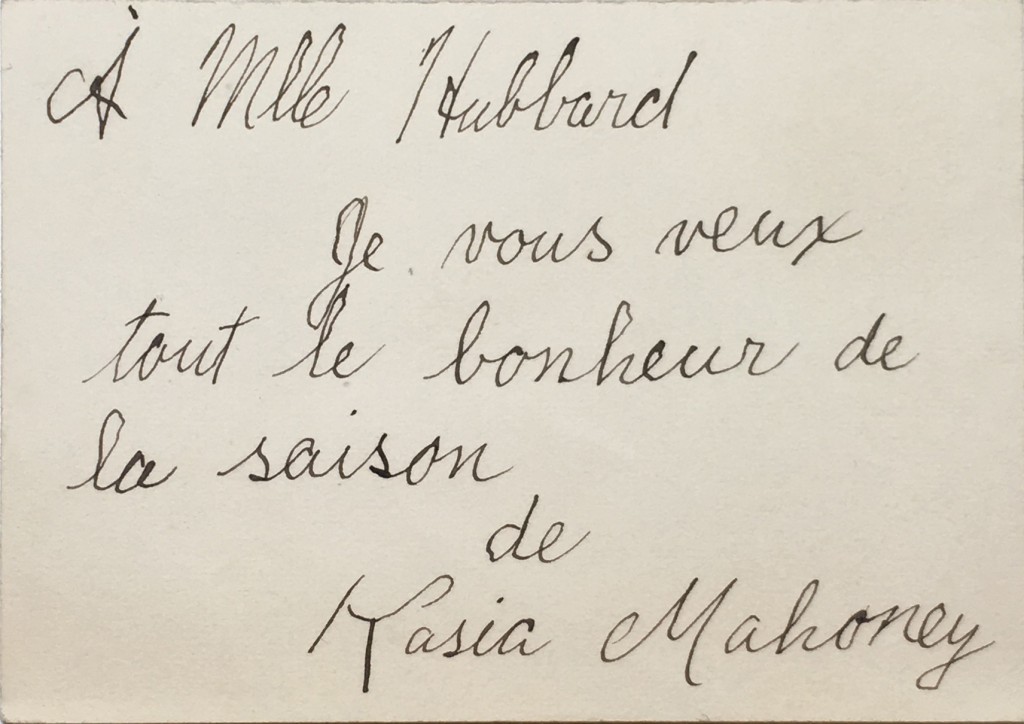 À Mlle Hubbard
Je vous veux
tout le bonheur de
la saison
de
Kasia Mahoney